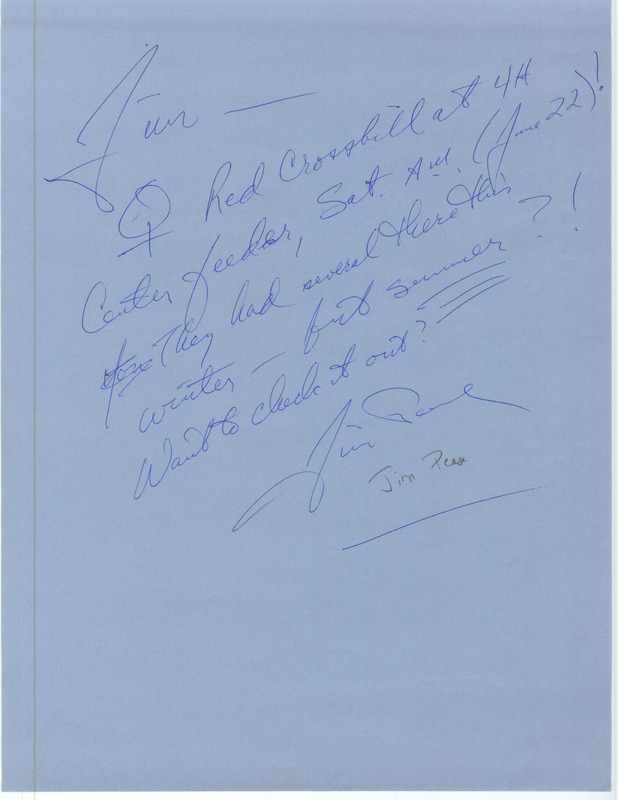 Jim —
♀ Red Crossbill at 4H
Center feeder, Sat. A.M. (June 22)!
They had several there this
winter — but summer?!
Want to check it out?
Jim Pease
Jim Pease